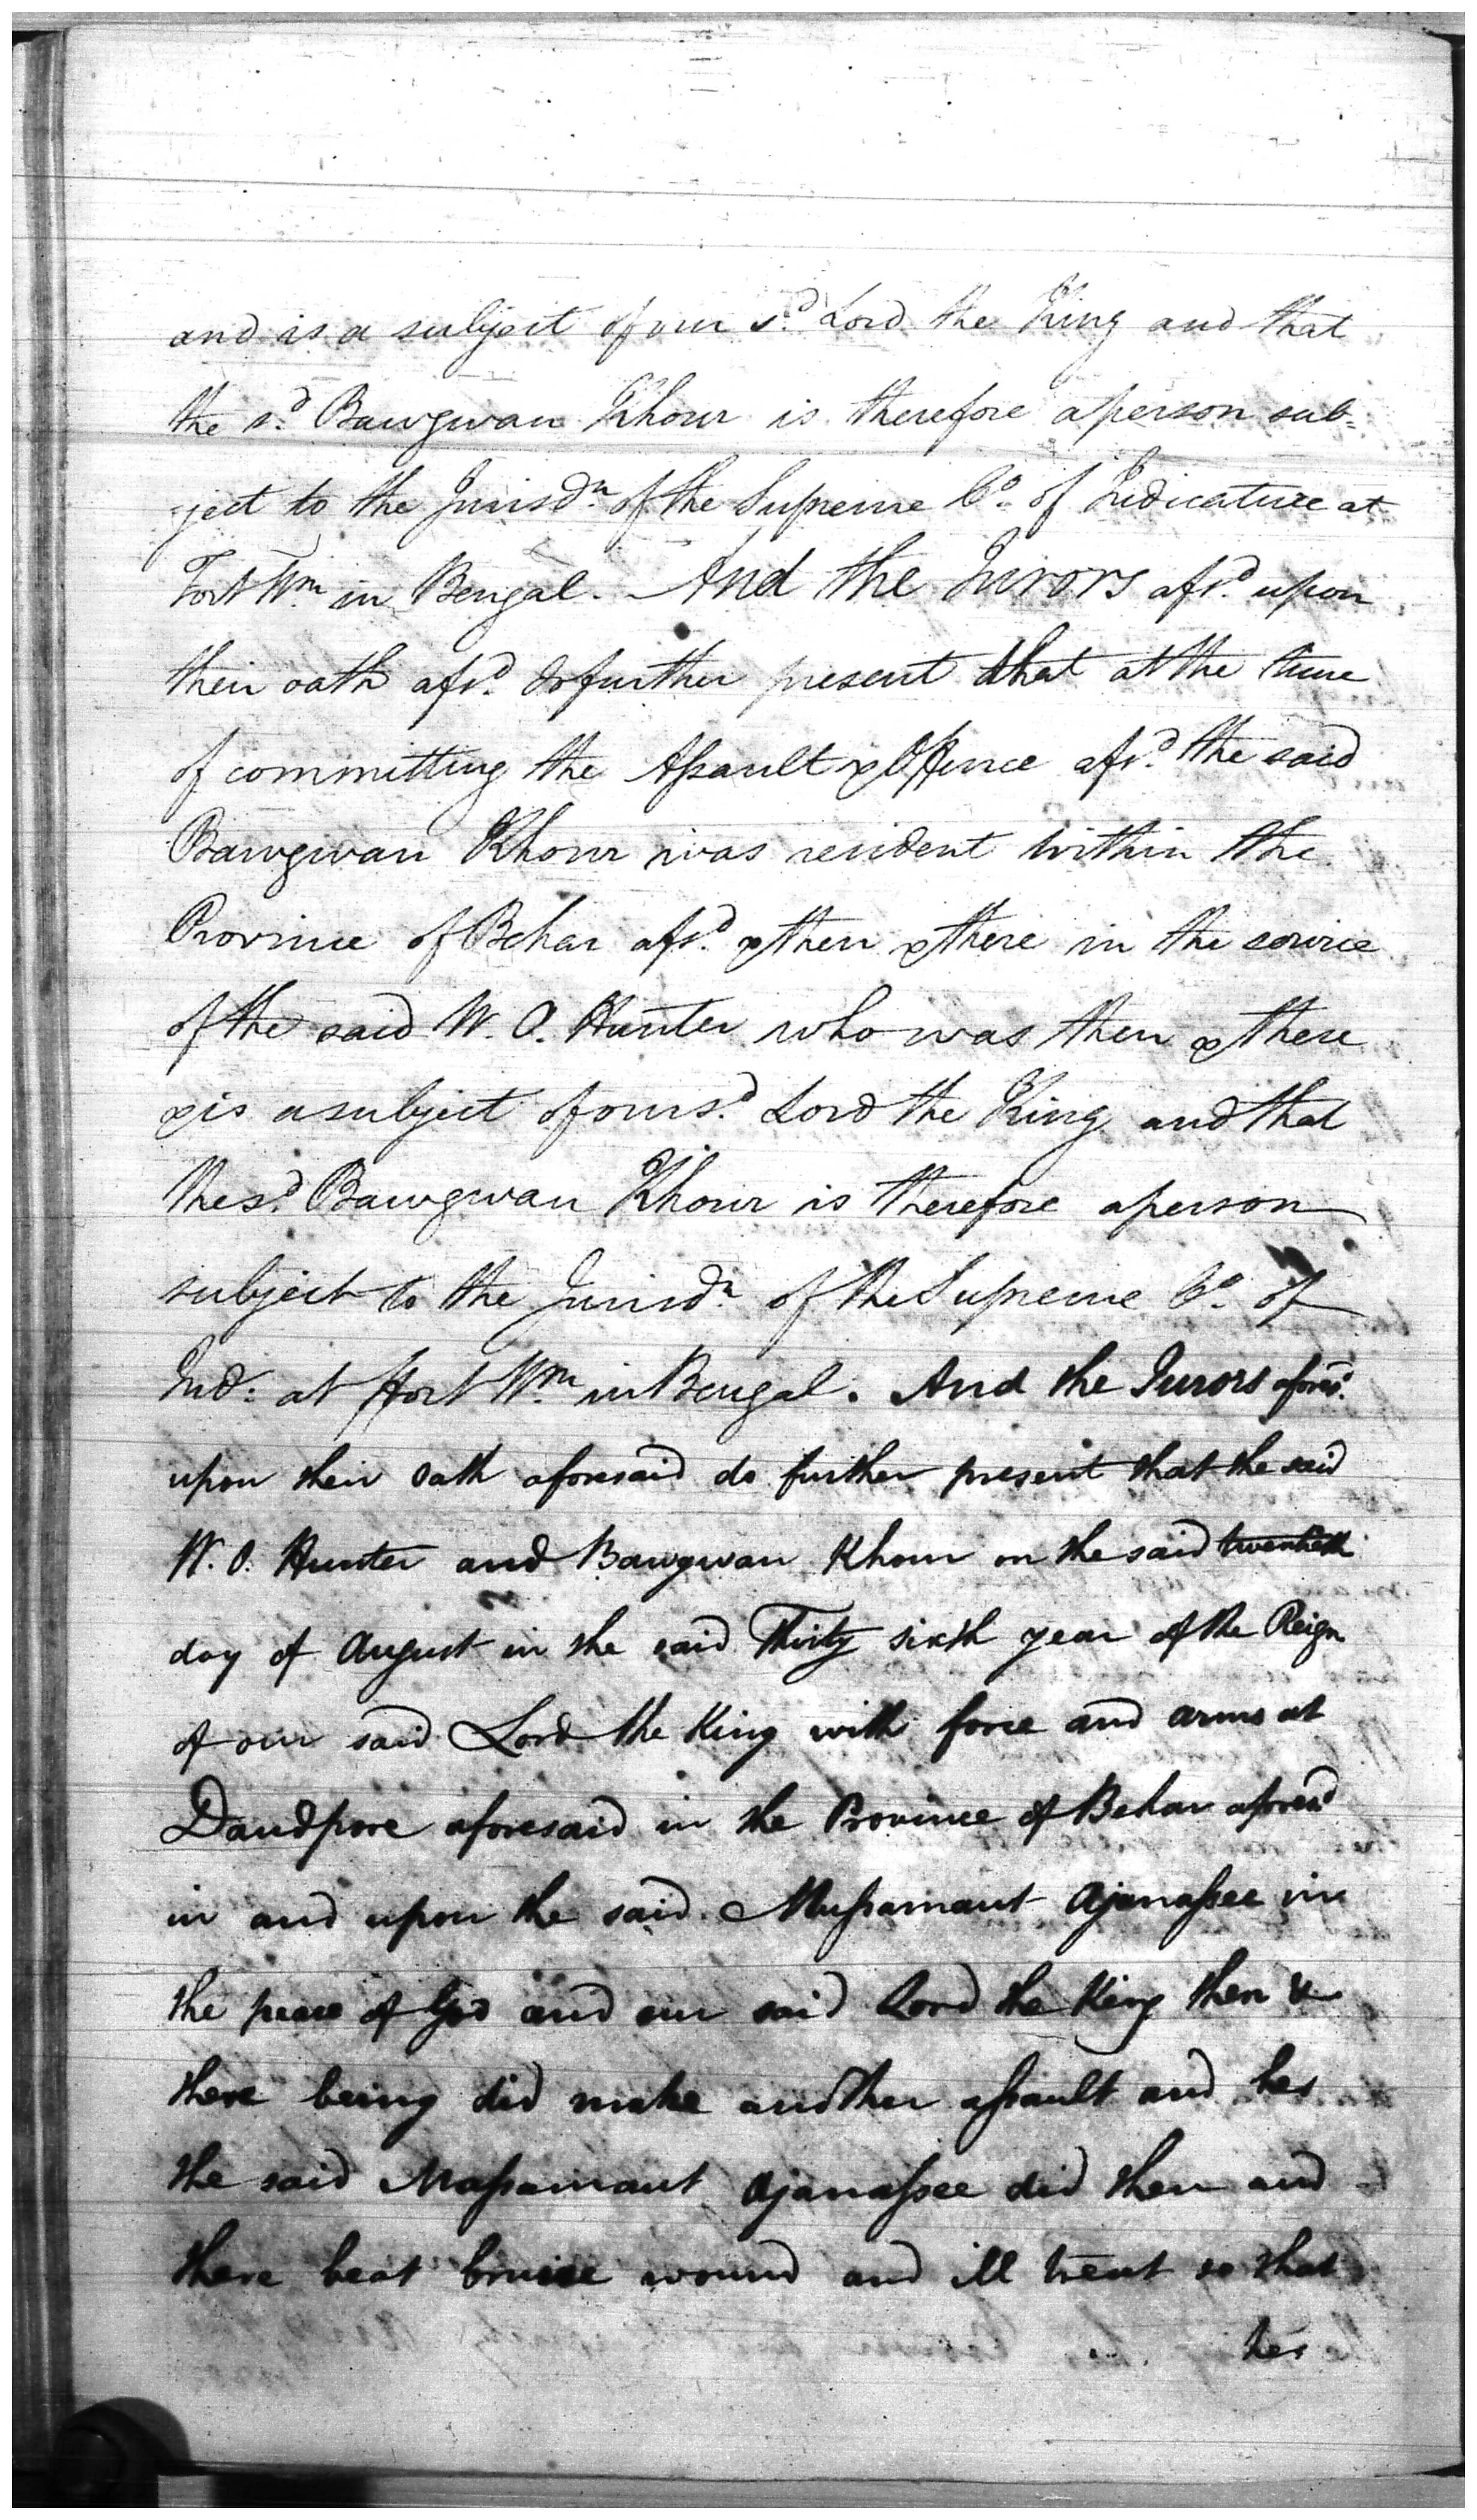 and is a subject of our s.d Lord the King and that
the s.d Bawgwan Khour is therefore a person sub=
ject to the Jurisd.n of the Supreme Co. of Judicature at
Fort Wm. in Bengal. And the Jurors afs.d upon
their oath afs.d do further present that at the time
of committing the Assault & Offence afs.d the said
Bawgwan Khour was resident within the
Province of Behar afs.d & then & there in the service
of the said W. O. Hunter who was then & there
& is a subject of our s.d Lord the King and that
the s.d Bawgwan Khour is therefore a person
subject to the Jurisd.n of the Supreme Co. of
Jud: at ffort Wm. in Bengal. And the Jurors afores.d
upon their oath aforesaid do further present that the said
W. O. Hunter and Bawgwan Khour on the said twentieth
day of August in the said Thirty sixth year of the Reign
of our said Lord the King with force and arms at
Daudpore aforesaid in the Province of Behar aforesd
in and upon the said Mussamaut Ajanassee in
the peace of God and our said Lord the King then &
there being did make another assault and her
the said Massamaut Ajanassee did then and
there beat bruise wound and ill treat so that
her